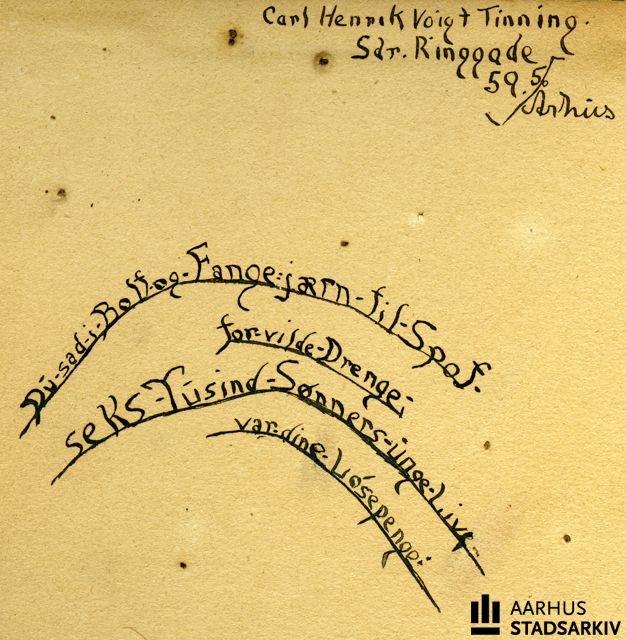 Carl Henrik Voigt Tinning.
Sdr. Ringgade
59.5.
Århus
Du-sad-i-Bolt-og-Fange-jærn-til-Spot.
for-vilde-Drenge;
seks-Tusind-Sønners-unge-Liv
var-dine-Løsepenge:
AARHUS
STADSARKIV